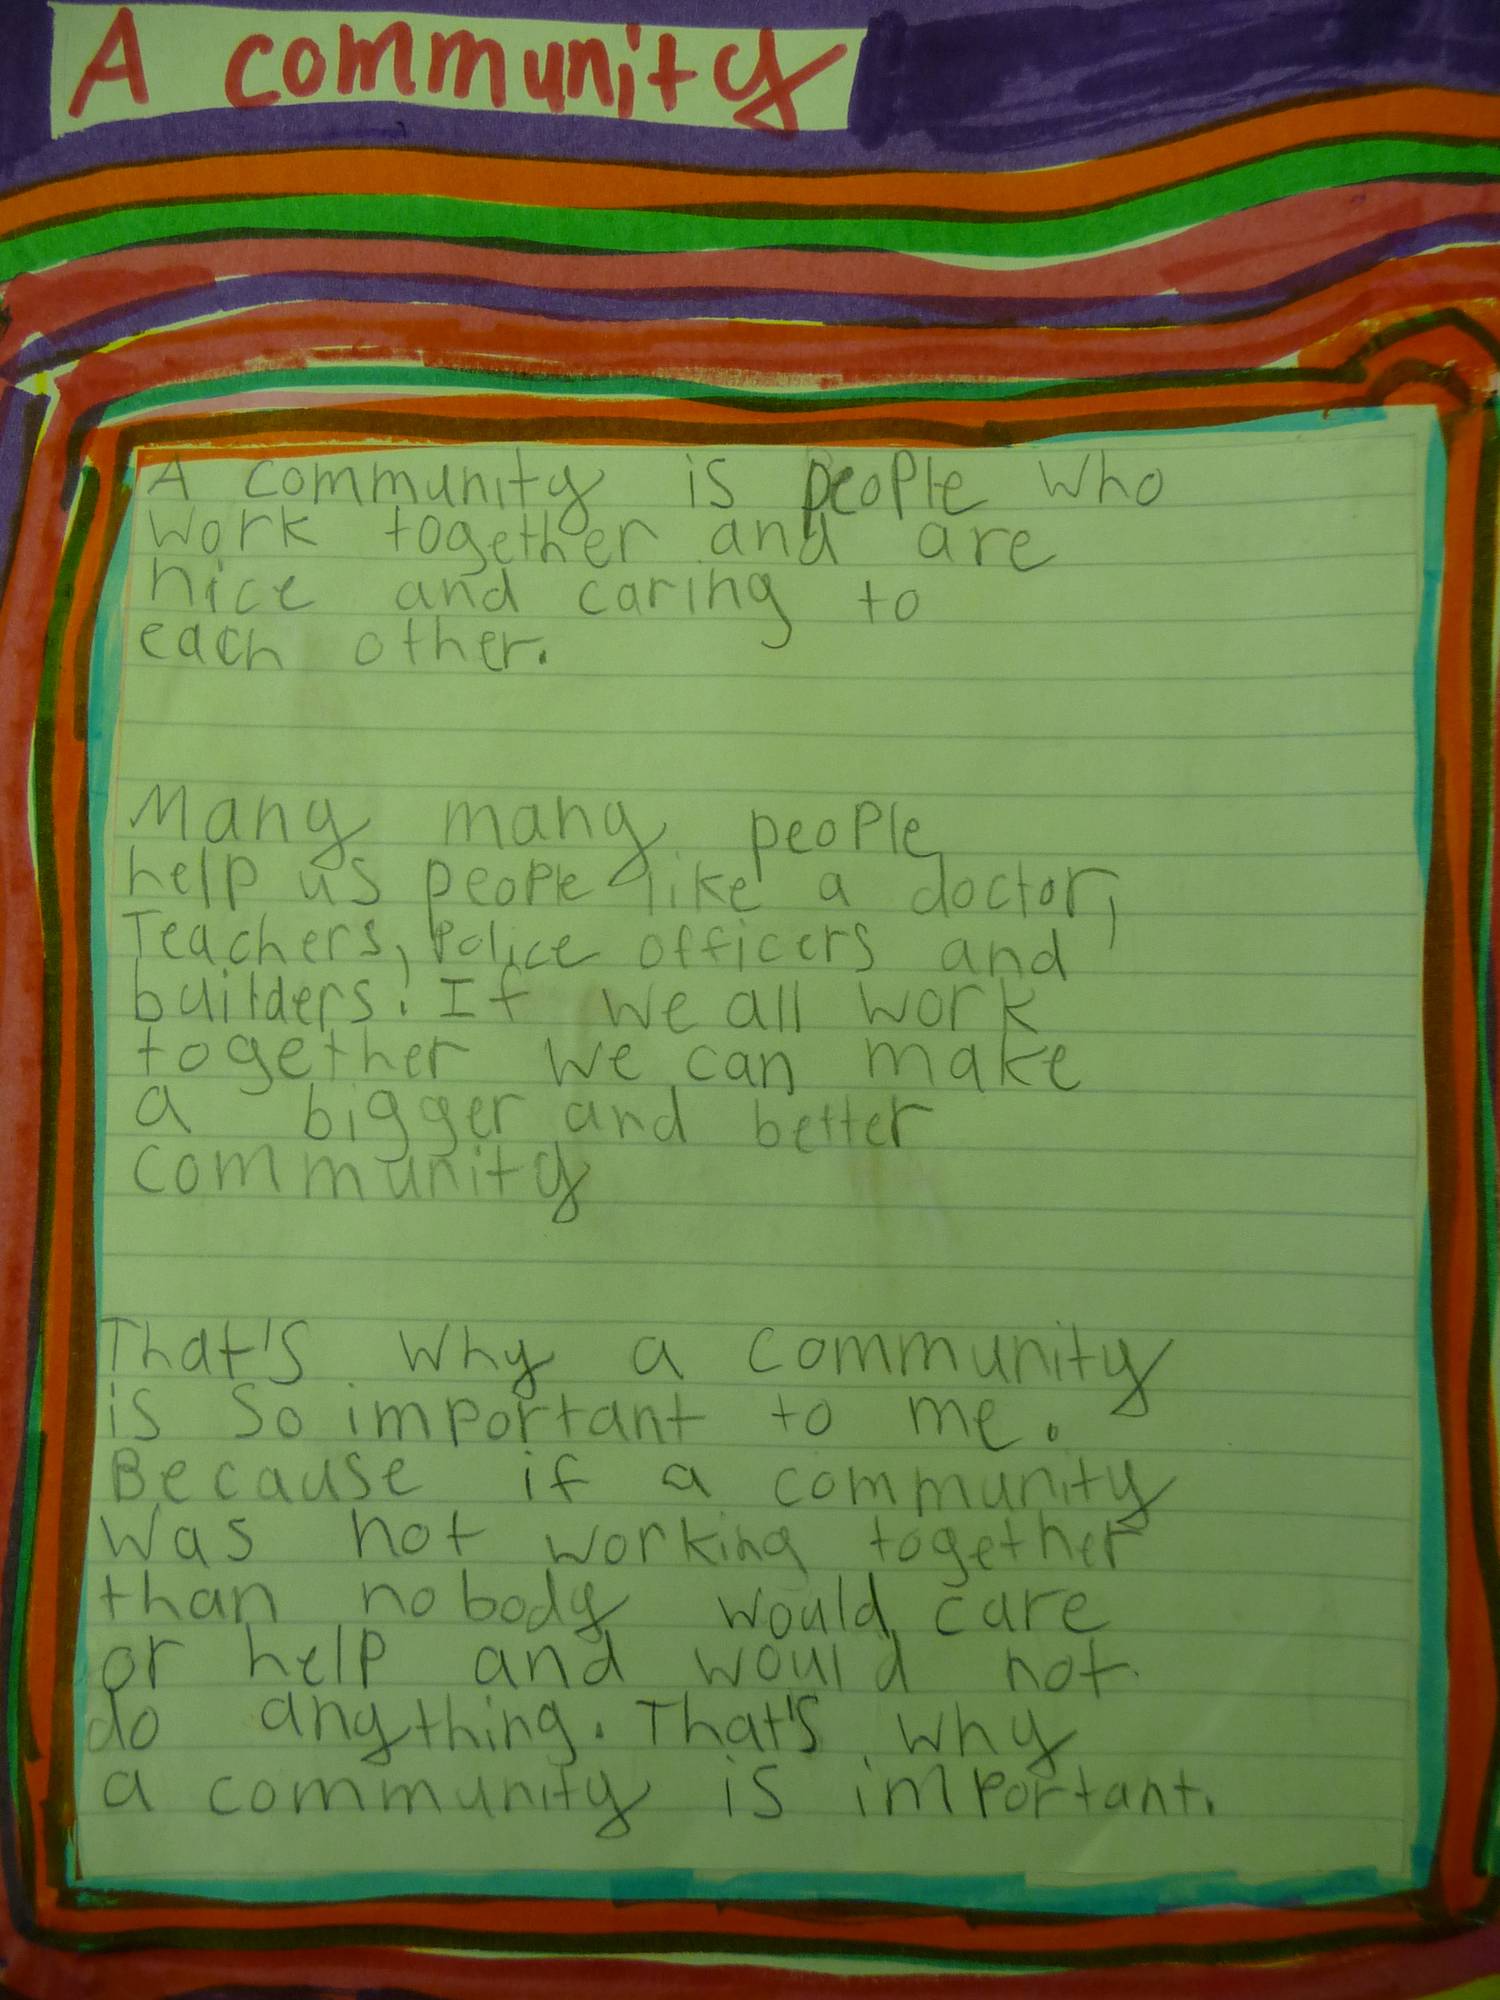 A community
A community is people who
work together and are
nice and caring to
each other.
Many many people
help us people like a doctor,
Teachers, Police officers and
builders. If we all work
together we can make
a bigger and better
community
That's why a community
is so important to me.
Because if a community
was not working together
than nobody would care
or help and would not
do anything. That's why
a community is important.